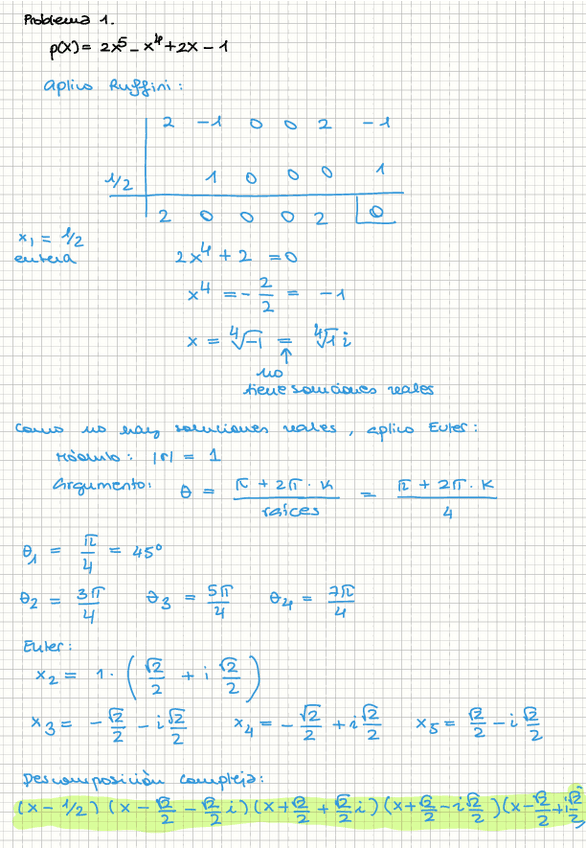 Problema 1.
p(x) = 2x⁵ - x⁴ + 2x - 1
Aplico Ruffini:
2 -1 0 0 2 -1
1/2 1 0 0 0 1
2 0 0 0 2 0
x₁ = 1/2
entera
2x⁴ + 2 = 0
x⁴ = -2/2 = -1
x = ⁴√-1 = ⁴√1 i
↑
no
tiene soluciones reales
Como no hay soluciones reales, aplico Euler:
Módulo: |r| = 1
Argumento: θ = (π + 2π · K)/raíces = (π + 2π · K)/4
θ₁ = π/4 = 45°
θ₂ = 3π/4 θ₃ = 5π/4 θ₄ = 7π/4
Euler:
x₂ = 1 · (√2/2 + i √2/2)
x₃ = -√2/2 - i √2/2 x₄ = -√2/2 + i √2/2 x₅ = √2/2 - i √2/2
Descomposición compleja:
(x - 1/2) (x - √2/2 - √2/2 i) (x + √2/2 + √2/2 i) (x + √2/2 - i √2/2) (x - √2/2 + i √2/2)